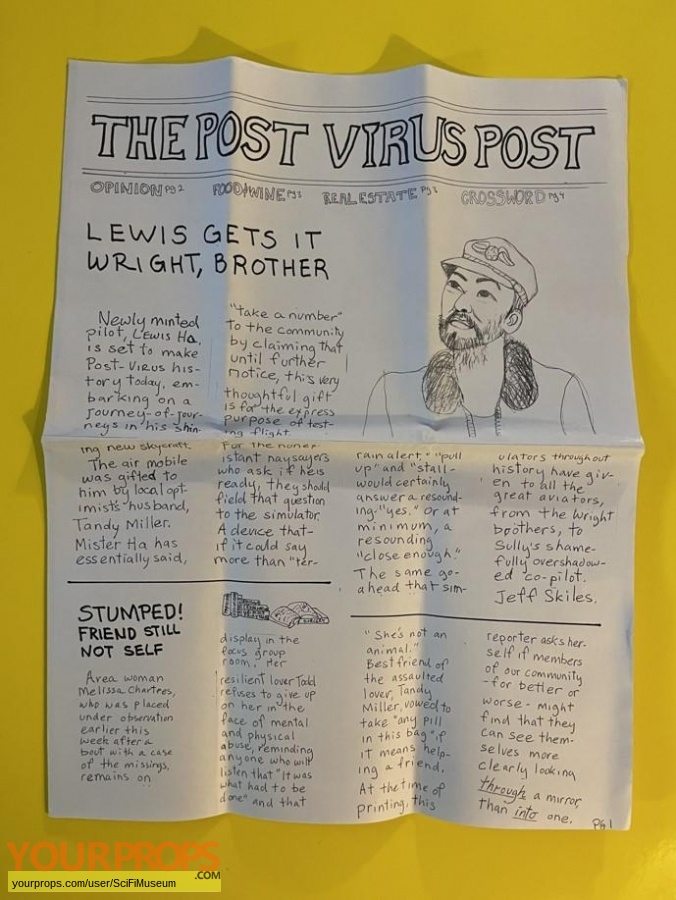 THE POST VIRUS POST
OPINION pg 2 FOOD/WINE pg 3 REAL ESTATE pg 3 CROSSWORD pg 4
LEWIS GETS IT
WRIGHT, BROTHER
Newly minted
pilot, Lewis Ha,
is set to make
Post-Virus his-
tory today, em-
barking on a
Journey-of-jour-
neys in his shin-
ing new skycraft.
The air mobile
was gifted to
him by local opt-
imists' husband,
Tandy Miller.
Mister Ha has
essentially said,
"take a number"
to the community
by claiming that
until further
notice, this very
thoughtful gift
is for the express
purpose of test-
ing flight.
For the
istant naysayers
who ask if he is
ready, they should
field that question
to the simulator.
A device that-
if it could say
more than "ter-
rain alert," "pull
up" and "stall-
would certainly
answer a resound-
ing "yes." Or at
minimum, a
resounding
"close enough."
The same go-
ahead that sim-
ulators throughout
history have giv-
en to all the
great aviators,
from the Wright
brothers, to
Sully's shame-
fully overshadow-
ed co-pilot,
Jeff Skiles.
STUMPED!
FRIEND STILL
NOT SELF
Area woman
Melissa Chartres,
who was placed
under observation
earlier this
week after a
bout with a case
of the missings,
remains on
display in the
focus group
room. Her
resilient lover Todd
refuses to give up
on her in the
face of mental
and physical
abuse, reminding
anyone who will
listen that "It was
what had to be
done" and that
"She's not an
animal."
Best friend of
the assaulted
lover, Tandy
Miller, vowed to
take "any pill
in this bag" if
it means help-
ing a friend.
At the time of
printing, this
reporter asks her-
self if members
of our community
-for better or
worse- might
find that they
can see them-
selves more
clearly looking
through a mirror,
than into one.
pg 1
YOURPROPS
.COM
yourprops.com/user/SciFiMuseum